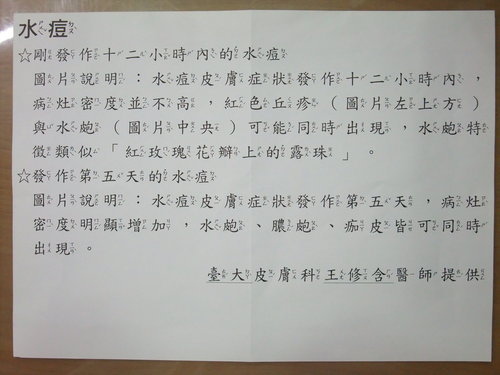 水痘
☆剛發作十二小時內的水痘
圖片說明：水痘皮膚症狀發作十二小時內，
病灶密度並不高，紅色丘疹（圖片左上方）
與水皰（圖片中央）可能同時出現，水皰特
徵類似「紅玫瑰花瓣上的露珠」。
☆發作第五天的水痘
圖片說明：水痘皮膚症狀發作第五天，病灶
密度明顯增加，水皰、膿皰、痂皮皆可同時
出現。
臺大皮膚科王修含醫師提供